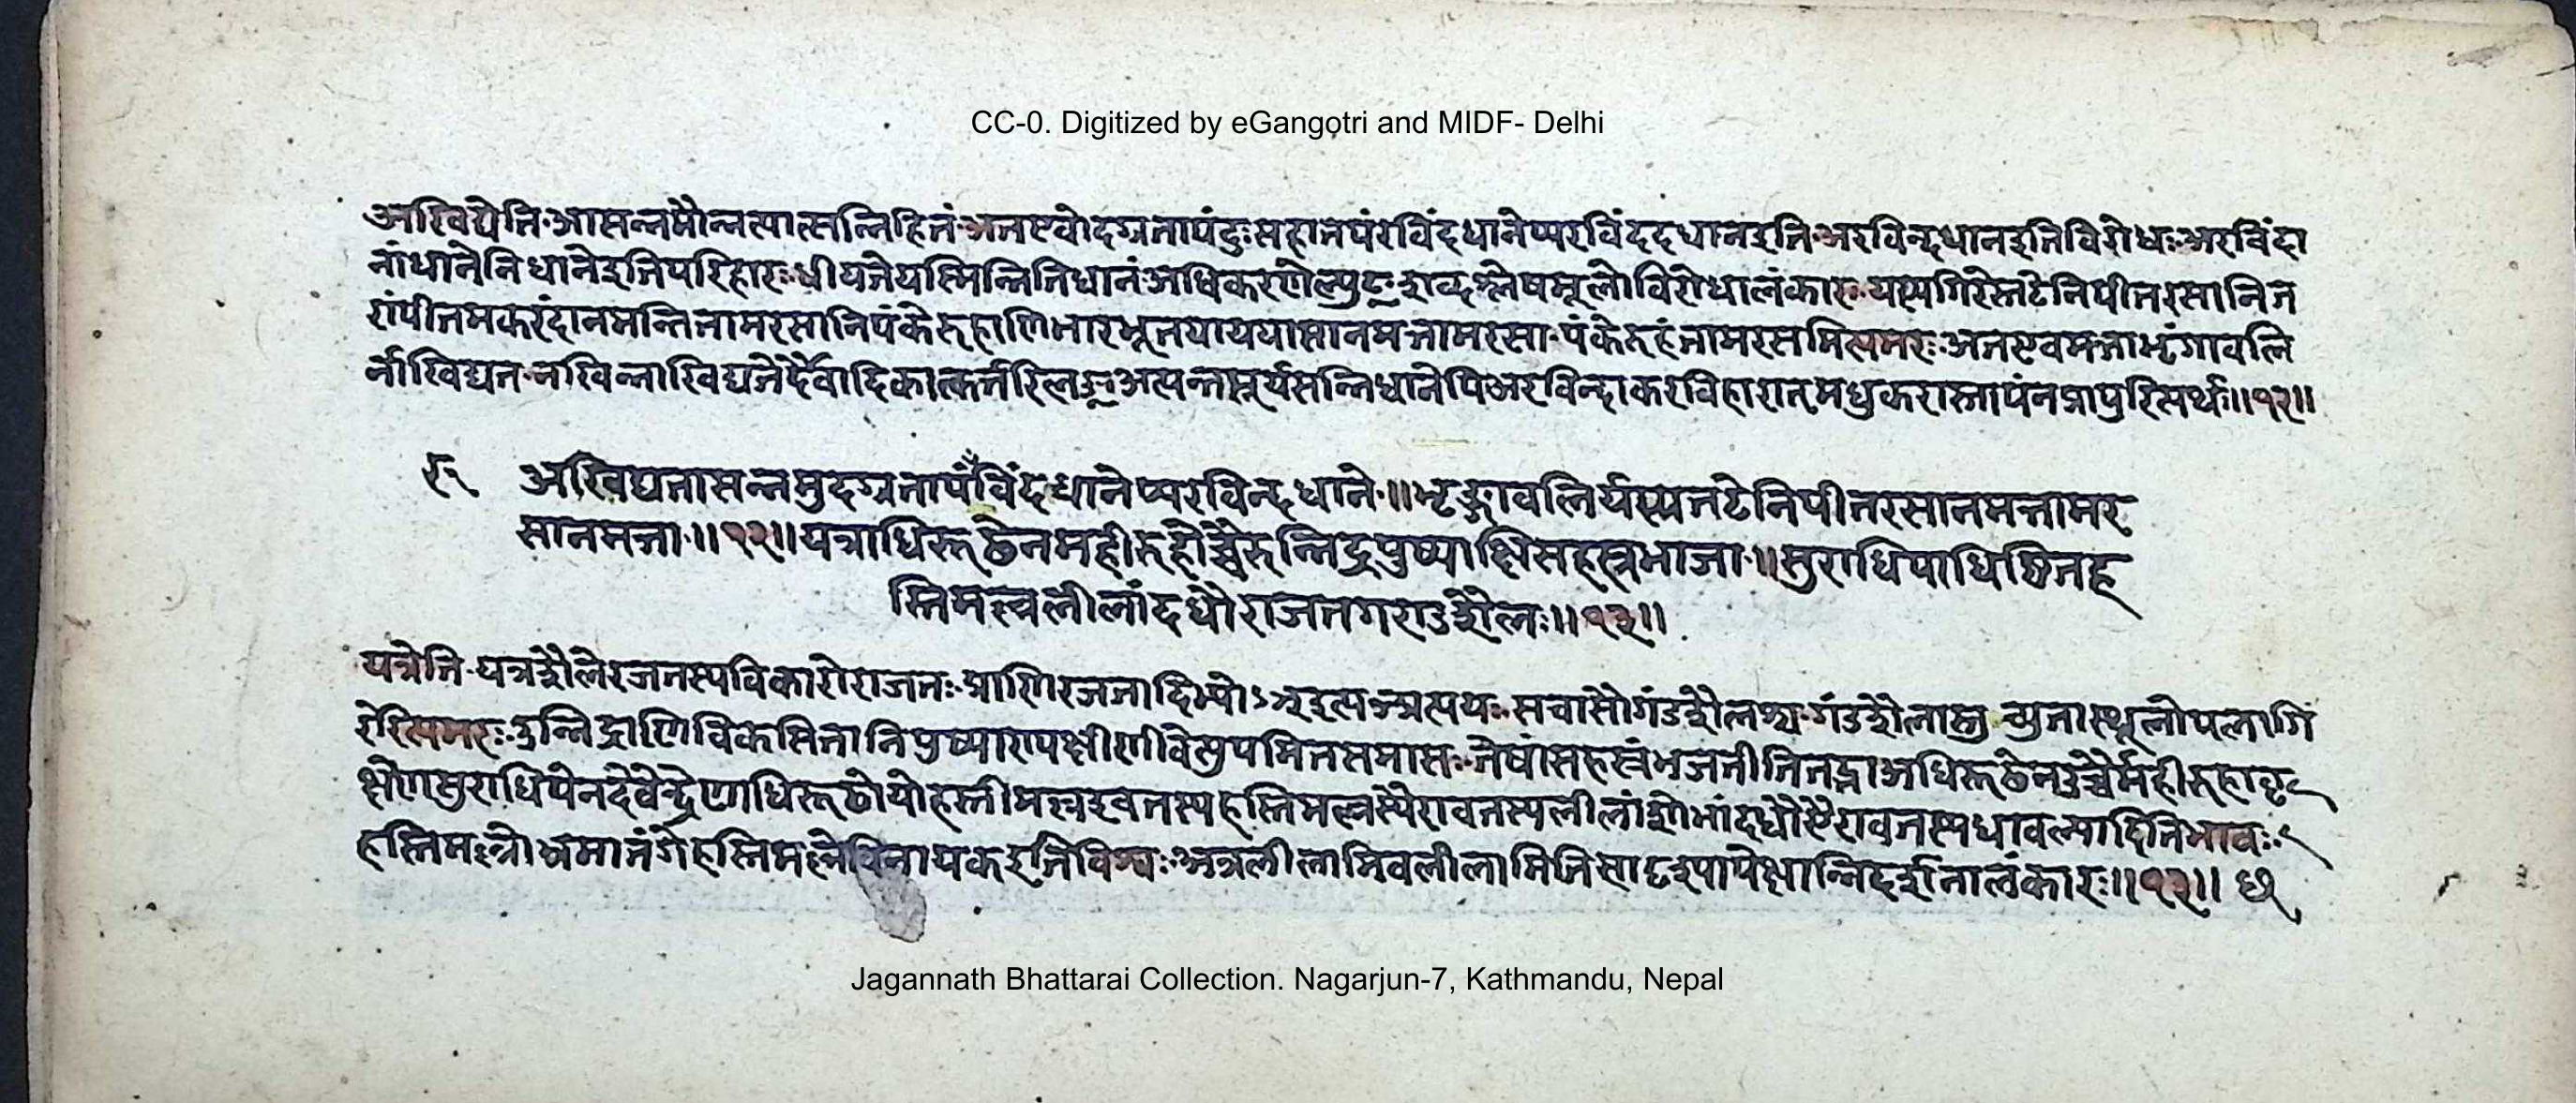 CC-0. Digitized by eGangotri and MIDF- Delhi
अखिद्येति आसन्नमौन्नत्यात्सन्निहितं अतएवोदग्रतापंदुःसहातपंरविंदधानेप्यरविंददधानइति अरविन्दधानइतिविरोधः अरविंदा
नांधानेनिधानेइतिपरिहारः धीयतेयस्मिन्नितिधानंअधिकरणेल्युट् शब्दश्लेषमूलोविरोधालंकारः यस्यगिरेस्तटेनिपीतरसानित
रांपीतमकरंदानमन्तितामरसानिपंकेरुहाणिभारभूतयाययासानमत्तामरसा पंकेरुहंतामरसमित्यमरः अतएवमत्ताभृंगावलि
र्नाखिद्यत नखिन्नाखिद्यतेर्दैवादिकात्कर्त्तरिलङ् अत्यन्तसूर्यसन्निधानेपिअरविन्दाकरविहारान्मधुकरास्तापंनप्रापुरित्यर्थः॥१२॥
अखिद्यतासन्नमुदग्रतापंरविंदधानेप्यरविन्दधाने॥भृङ्गावलिर्यस्यतटेनिपीतरसानमत्तामर
सानमत्ता॥१२॥यत्राधिरूढेनमहीरुहोच्चैरुन्निद्रपुष्पाक्षिसहस्रभाजा॥सुराधिपाधिष्ठितह
स्तिमल्ललीलांदधौराजतगण्डशैलः॥१३॥
यत्रेति यत्रशैलेरजतस्यविकारोराजतः प्राणिरजतादिभ्योऽञ्इत्यञ्प्रत्ययः सचासौगंडशैलश्च गंडशैलास्तु च्युतास्थूलोपलागि
रेरित्यमरः उन्निद्राणिविकसितानिपुष्पाण्यक्षीणीवेत्युपमितसमासः तेषांसहस्रंभजतीतितद्भाअधिरूढेनउच्चैर्महीरुहावृ
क्षेणसुराधिपेनदेवेन्द्रेणाधिरूढोयोहस्तीमल्लइवतस्यहस्तिमल्लस्यैरावतस्यलीलांशोभांदधौऐरावतस्यधावल्यादितिभावः
हस्तिमल्लोभ्रमातंगेहस्तिमल्लोविनायकइतिविश्वः अत्रलीलामिवलीलामितिसादृश्यापेक्षान्निदर्शनालंकारः॥१३॥
Jagannath Bhattarai Collection. Nagarjun-7, Kathmandu, Nepal